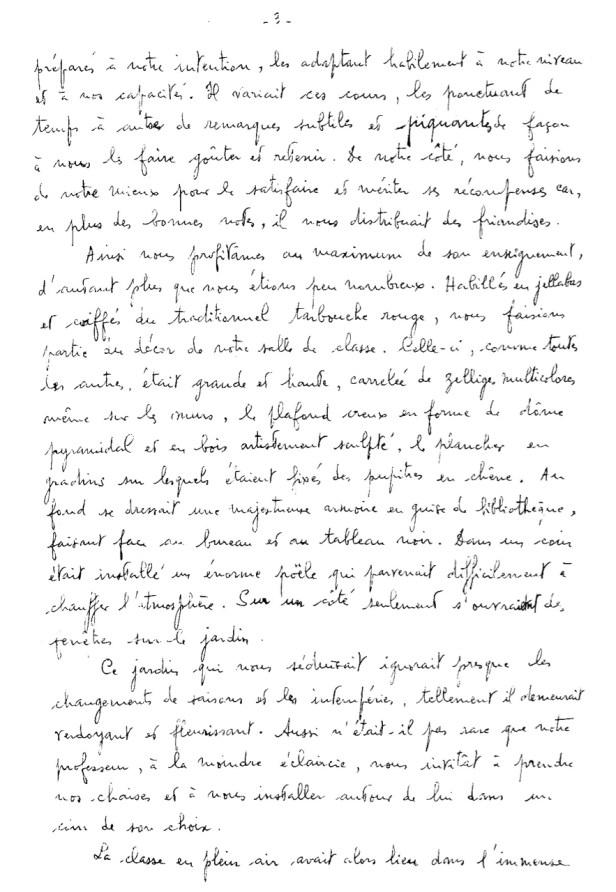 - 3 -
préparés à notre intention, les adaptant habilement à notre niveau
et à nos capacités. Il variait ces cours, les ponctuant de
temps à autres de remarques subtiles et piquantes de façon
à nous les faire goûter et retenir. De notre côté, nous faisions
de notre mieux pour le satisfaire et mériter ses récompenses car,
en plus des bonnes notes, il nous distribuait des friandises.
Ainsi nous profitâmes au maximum de son enseignement,
d'autant plus que nous étions peu nombreux. Habillés en jellabas
et coiffés du traditionnel tarbouche rouge, nous faisions
partie du décor de notre salle de classe. Celle-ci, comme toutes
les autres, était grande et haute, carrelée de zelliges multicolores
même sur les murs, le plafond creux en forme de dôme
pyramidal et en bois artistement sculpté, le plancher en
gradins sur lesquels étaient fixés des pupitres en chêne. Au
fond se dressait une majestueuse armoire en guise de bibliothèque,
faisant face au bureau et au tableau noir. Dans un coin
était installé un énorme poële qui parvenait difficilement à
chauffer l'atmosphère. Sur un côté seulement s'ouvraient des
fenêtres sur le jardin.
Ce jardin qui nous séduisait ignorait presque les
changements de saisons et les intempéries, tellement il demeurait
verdoyant et fleurissant. Aussi n'était-il pas rare que notre
professeur, à la moindre éclaircie, nous invitât à prendre
nos chaises et à nous installer autour de lui dans un
coin de son choix.
La classe en plein air avait alors lieu dans l'immense